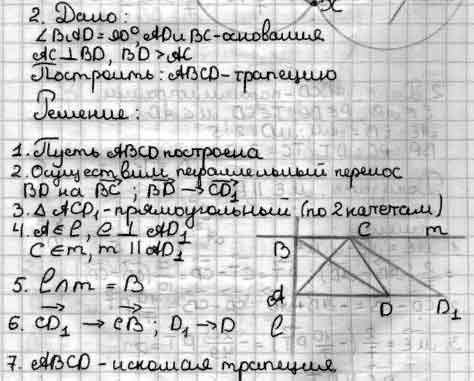 2. Дано:
∠BAD=90°, AD и BC-основания
AC⊥BD, BD>AC
Построить: ABCD-трапецию
Решение:
1. Пусть ABCD построена
2. Осуществим параллельный перенос
BD на BC ; BD → CD₁
3. △ ACD₁-прямоугольный (по 2 катетам)
4. A∈ℓ, ℓ ⊥ AD₁
C∈m, m ∥ AD₁
5. ℓ∩m = B
6. CD₁ → CB ; D₁→D
7. ABCD-искомая трапеция
B
C
m
A
D
D₁
ℓ